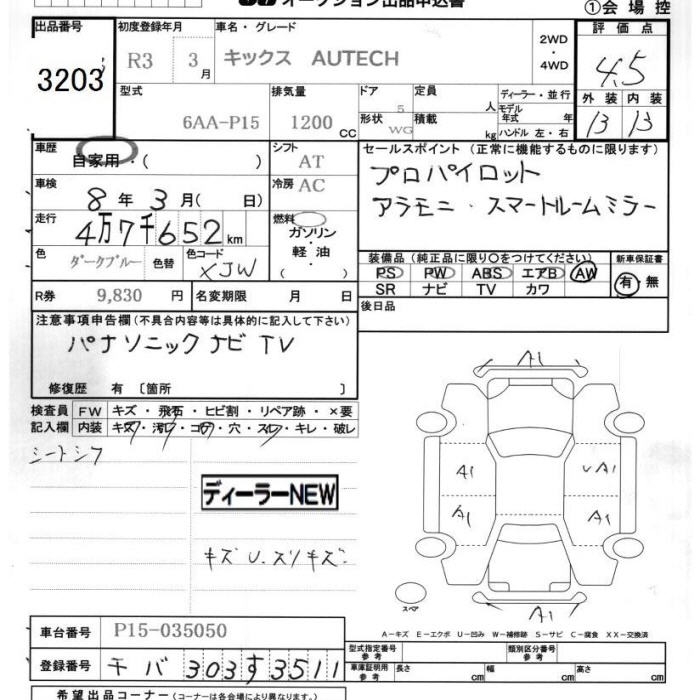 オークション出品申込書
①会場控
出品番号 初度登録年月 車名・グレード 評価点
3203 R3 3月 キックス AUTECH 2WD・4WD 4.5
型式 排気量 ドア 定員 ディーラー・並行 外装 内装
6AA-P15 1200 CC 5 人 モデル年式 年 B B
形状 積載
WG kg ハンドル 左・右
車歴 自家用・( ) シフト AT セールスポイント (正常に機能するものに限ります)
車検 8年 3月( 日) 冷房 AC プロパイロット
走行 4万7千652km 燃料 ガソリン・軽油・( ) アラモニ・スマートルームミラー
色 ダークブルー 色替 色コード XJW 装備品 (純正品に限り○をつけてください) 新車保証書
PS PW ABS エアB AW 有・無
SR ナビ TV カワ
R券 9,830円 名変期限 月 日 後日品
注意事項申告欄 (不具合内容等は具体的に記入して下さい)
パナソニックナビTV
修復歴 有〔箇所 〕
検査員記入欄 FW キズ・飛石・ヒビ割・リペア跡・×要
内装 キズ・汚レ・コゲ・穴・スレ・キレ・破レ
シートシワ
ディーラーNEW
キズU.スリキズ.
A1
A1 UA1
A1 A1
A1
スペア
A-キズ E-エクボ U-凹み W-補修跡 S-サビ C-腐食 XX-交換済
車台番号 P15-035050
登録番号 チバ 303す3511
型式指定番号 参考 類別区分番号 参考
車庫証明用 参考 長さ cm 幅 cm 高さ cm
希望出品コーナー (コーナーは各会場により異なります。)